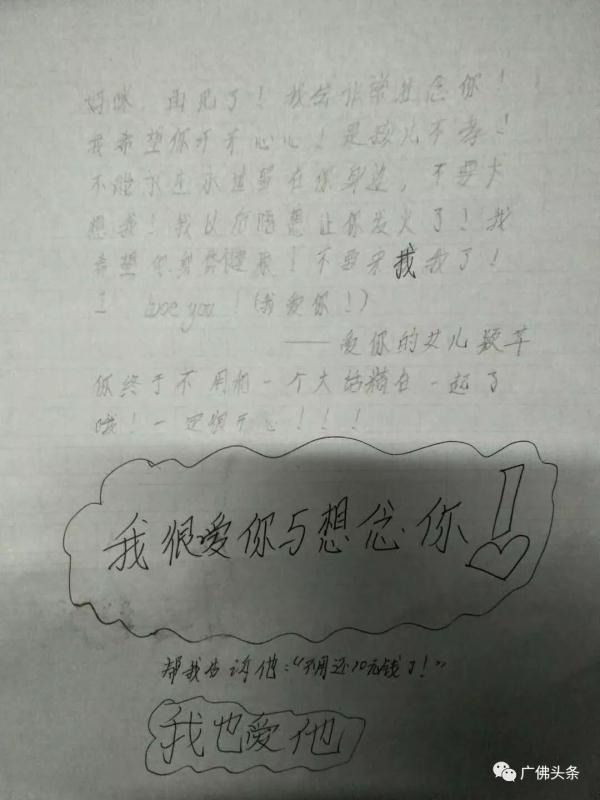 妈咪，再见了！我会非常想念你！
我希望你开开心心！是孩儿不孝！
不能永远永远留在你身边，不要太
想我！我以后唔想让你发火了！我
希望你身体健康！不要来找我了！
I love you！(我爱你！)
——爱你的女儿颖芊
你终于不用和一个大话精在一起了
哦！一定很开心！！！
我很爱你与想念你！
帮我告诉他："不用还10元钱了！"
我也爱他
广佛头条